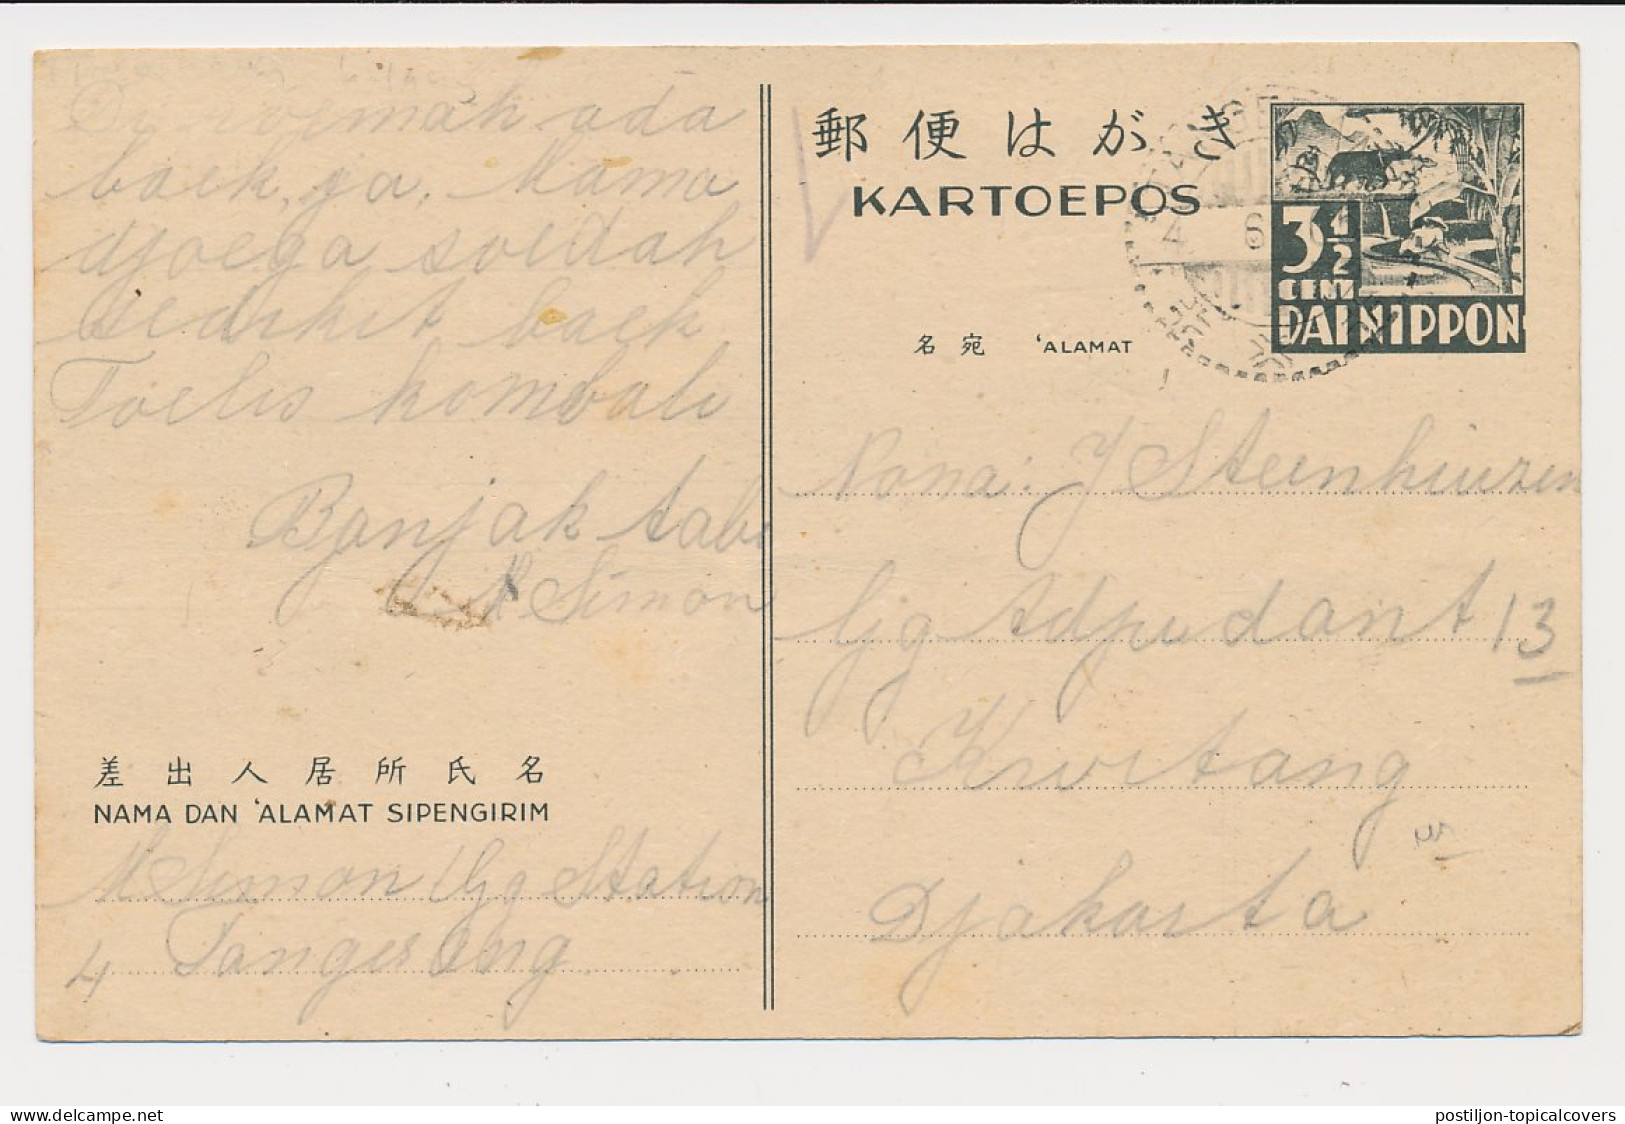 Di roemah ada
baek, ja, Mama
djoega soedah
sedikit baek
Toelis kombali
Banjak tabe
M Simon
差出人居所氏名
NAMA DAN 'ALAMAT SIPENGIRIM
M Simon Gg Station
4 Tangerang
郵便はがき
KARTOEPOS
3½
CENT
DAI NIPPON
名宛 'ALAMAT
Nona: J Steenhuizen
Gg Adpudant 13
Kwitang
Djakarta
postiljon-topicalcovers